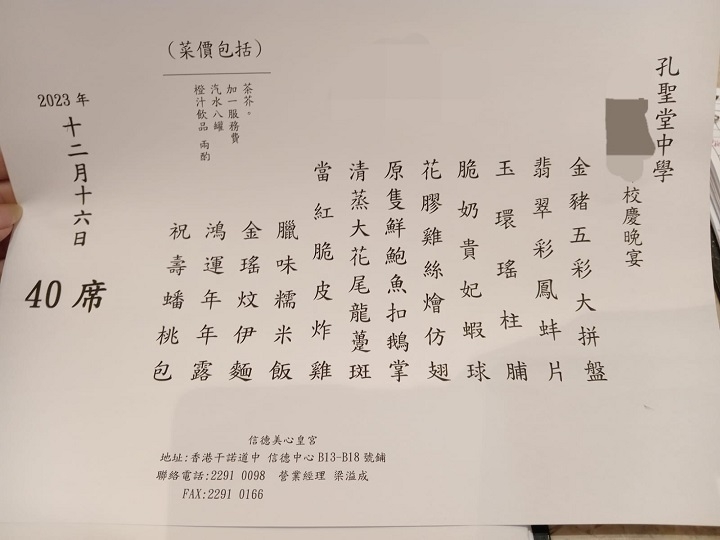 孔聖堂中學
校慶晚宴
金豬五彩大拼盤
翡翠彩鳳蚌片
玉環瑤柱脯
脆奶貴妃蝦球
花膠雞絲燴仿翅
原隻鮮鮑魚扣鵝掌
清蒸大花尾龍躉斑
當紅脆皮炸雞
臘味糯米飯
金瑤炆伊麵
鴻運年年露
祝壽蟠桃包
(菜價包括)
茶芥。
加一服務費
汽水八罐
橙汁飲品 兩酌
2023 年
十二月十六日
40 席
信德美心皇宮
地址:香港干諾道中 信德中心 B13-B18 號鋪
聯絡電話:2291 0098 營業經理 梁溢成
FAX:2291 0166